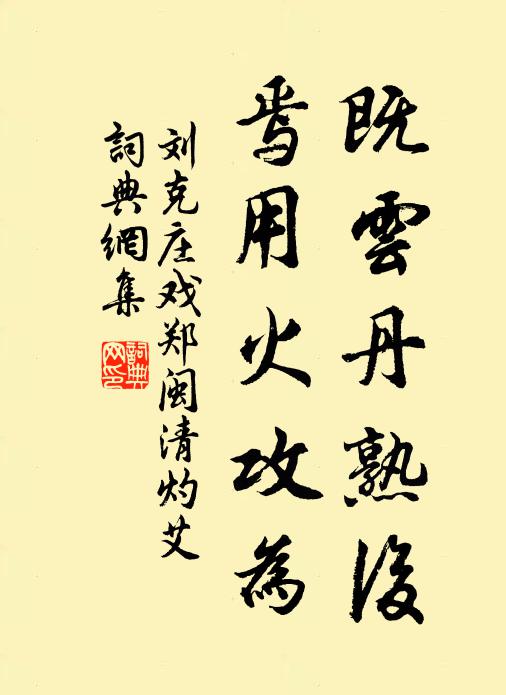 既雲丹熟後
焉用火攻為
刘克庄戏郑闽清灼艾
詞典網集
詞典网印